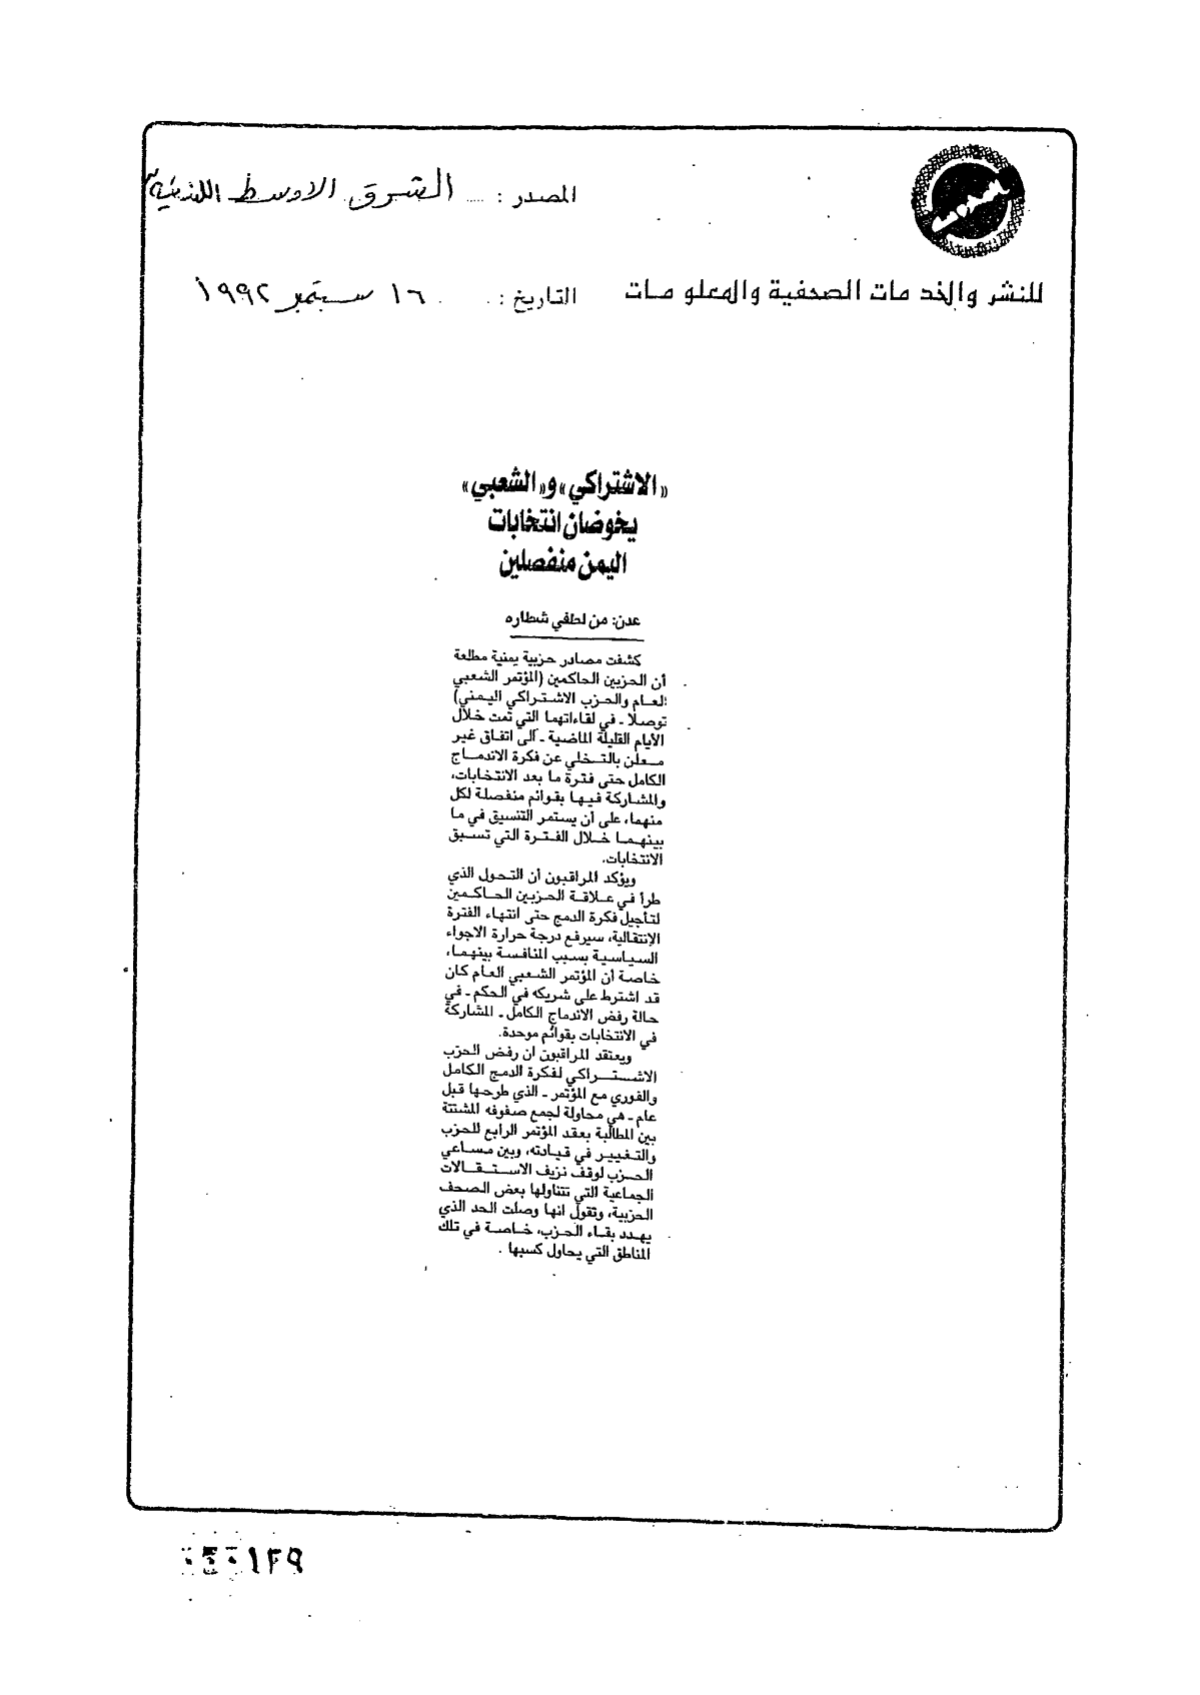 المصدر : الشرق الاوسط اللندنية
للنشر والخدمات الصحفية والمعلومات
التاريخ : ١٦ سبتمبر ١٩٩٢
«الاشتراكي» و«الشعبي»
يخوضان انتخابات
اليمن منفصلين
عدن: من لطفي شطاره
كشفت مصادر حزبية يمنية مطلعة
أن الحزبين الحاكمين (المؤتمر الشعبي
العام والحزب الاشتراكي اليمني)
توصلا ـ في لقاءاتهما التي تمت خلال
الأيام القليلة الماضية ـ الى اتفاق غير
معلن بالتخلي عن فكرة الاندماج
الكامل حتى فترة ما بعد الانتخابات،
والمشاركة فيها بقوائم منفصلة لكل
منهما، على أن يستمر التنسيق في ما
بينهما خلال الفترة التي تسبق
الانتخابات.
ويؤكد المراقبون أن التحول الذي
طرأ في علاقة الحزبين الحاكمين
لتأجيل فكرة الدمج حتى انتهاء الفترة
الإنتقالية، سيرفع درجة حرارة الاجواء
السياسية بسبب المنافسة بينهما،
خاصة أن المؤتمر الشعبي العام كان
قد اشترط على شريكه في الحكم ـ في
حالة رفض الاندماج الكامل ـ المشاركة
في الانتخابات بقوائم موحدة.
ويعتقد المراقبون ان رفض الحزب
الاشتراكي لفكرة الدمج الكامل
والفوري مع المؤتمر ـ الذي طرحها قبل
عام ـ هي محاولة لجمع صفوفه المشتتة
بين المطالبة بعقد المؤتمر الرابع للحزب
والتغيير في قيادته، وبين مساعي
الحزب لوقف نزيف الاستقالات
الجماعية التي تتناولها بعض الصحف
الحزبية، وتقول انها وصلت الحد الذي
يهدد بقاء الحزب، خاصة في تلك
المناطق التي يحاول كسبها .
١٢٩